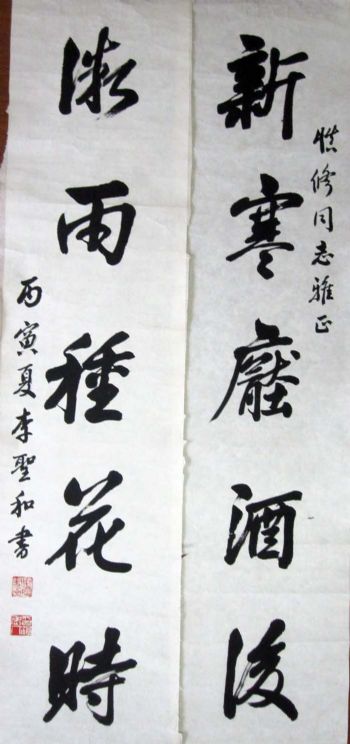 慎修同志雅正
新寒壓酒後
微雨種花時
丙寅夏李聖和書